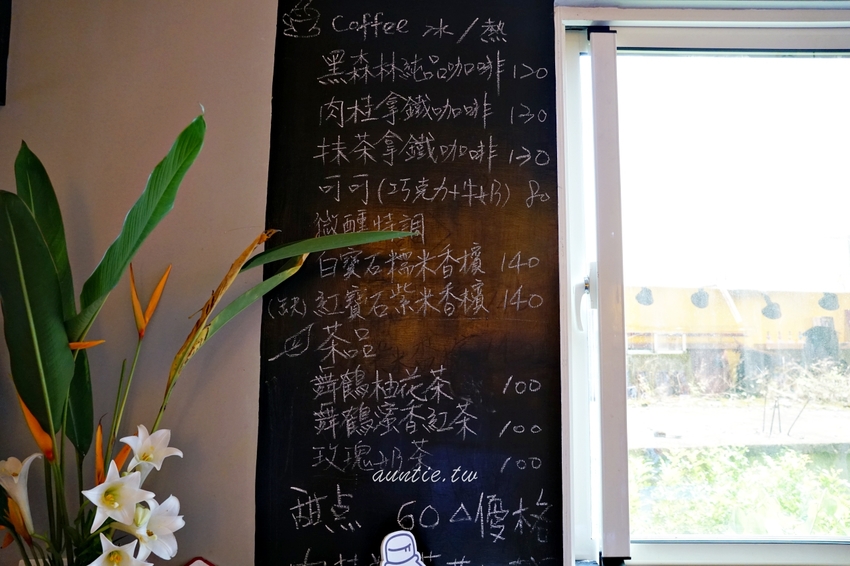 Coffee 冰/熱
黑森林純品咖啡 120
肉桂拿鐵咖啡 130
抹茶拿鐵咖啡 130
可可(巧克力+牛奶) 80
微醺特調
白寶石糯米香檳 140
(缺)紅寶石紫米香檳 140
茶品
舞鶴柚花茶 100
舞鶴蜜香紅茶 100
玫瑰奶茶 100
auntie.tw
甜点 60 優格